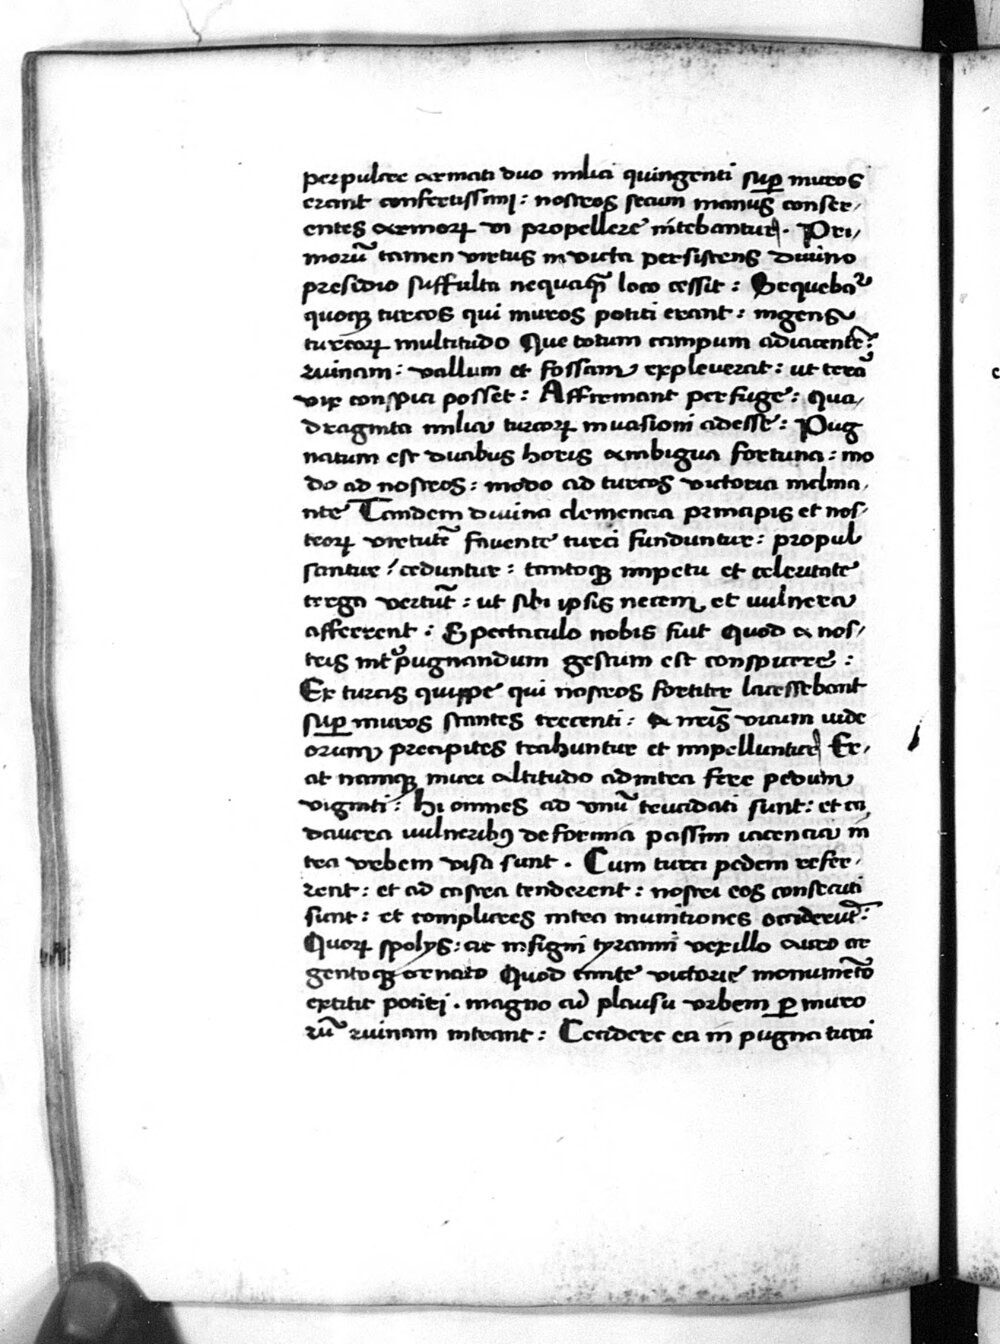 perpulere armati duo milia quingenti sup muros
erant confertissimj : nostros secum manus confer/
entes armorꝝ vi propellere nitebantur . Pri/
morū tamen virtus in victa persistens diuino
presidio suffulta nequaqᷓ loco cessit : Sequebat᷑
quoqꝫ turcos qui muros potiti erant : ingens
turcorꝝ multitudo Que totum campum adiacentē :
ruinam : vallum et fossam expleuerat : ut terā
vix conspici posset : Affirmant perfuge : Qua/
draginta milia turcorꝝ inuasioni adesse : Pug
natum est duabus horis ambigua fortuna : mo
do ad nostros : modo ad turcos victoria inclina/
nte Tandem diuina clemencia principis et nos/
trorꝝ virtute fauente turci funduntur : propul
santur / ceduntur : tantoqꝫ impetu et celeritate
terga vertūt : ut sibi ipsis necem et vulnera
afferrent : Spectaculo nobis fuit Quod a nos/
tris int᷑pugnandum gestum est conspicere :
Ex turcis quippe qui nostros fortiter lacessebant
sup muros stantes trecenti : a nr̄is vicum iude
orum precipites trahuntur et impelluntur Er/
at namqꝫ muri altitudo ad intra fere pedum
viginti : hi omnes ad vnū trucidati sunt : et ca
dauera vulneribꝯ deformia passim iacencia in
tra vrbem visa sunt . Cum turci pedem refer/
rent : et ad castra tenderent : nostri eos consecuti
sunt : et complures intra munitiones occiderūt :
Quorꝝ spolijs : ac insigni tyranni vexillo auro ar
gentoqꝫ ornato Quod tante victorie monumēto
extitit potiti . magno cū plausu vrbem ꝑ muro
rū ruinam intrant : Cecidere ea in pugna turci